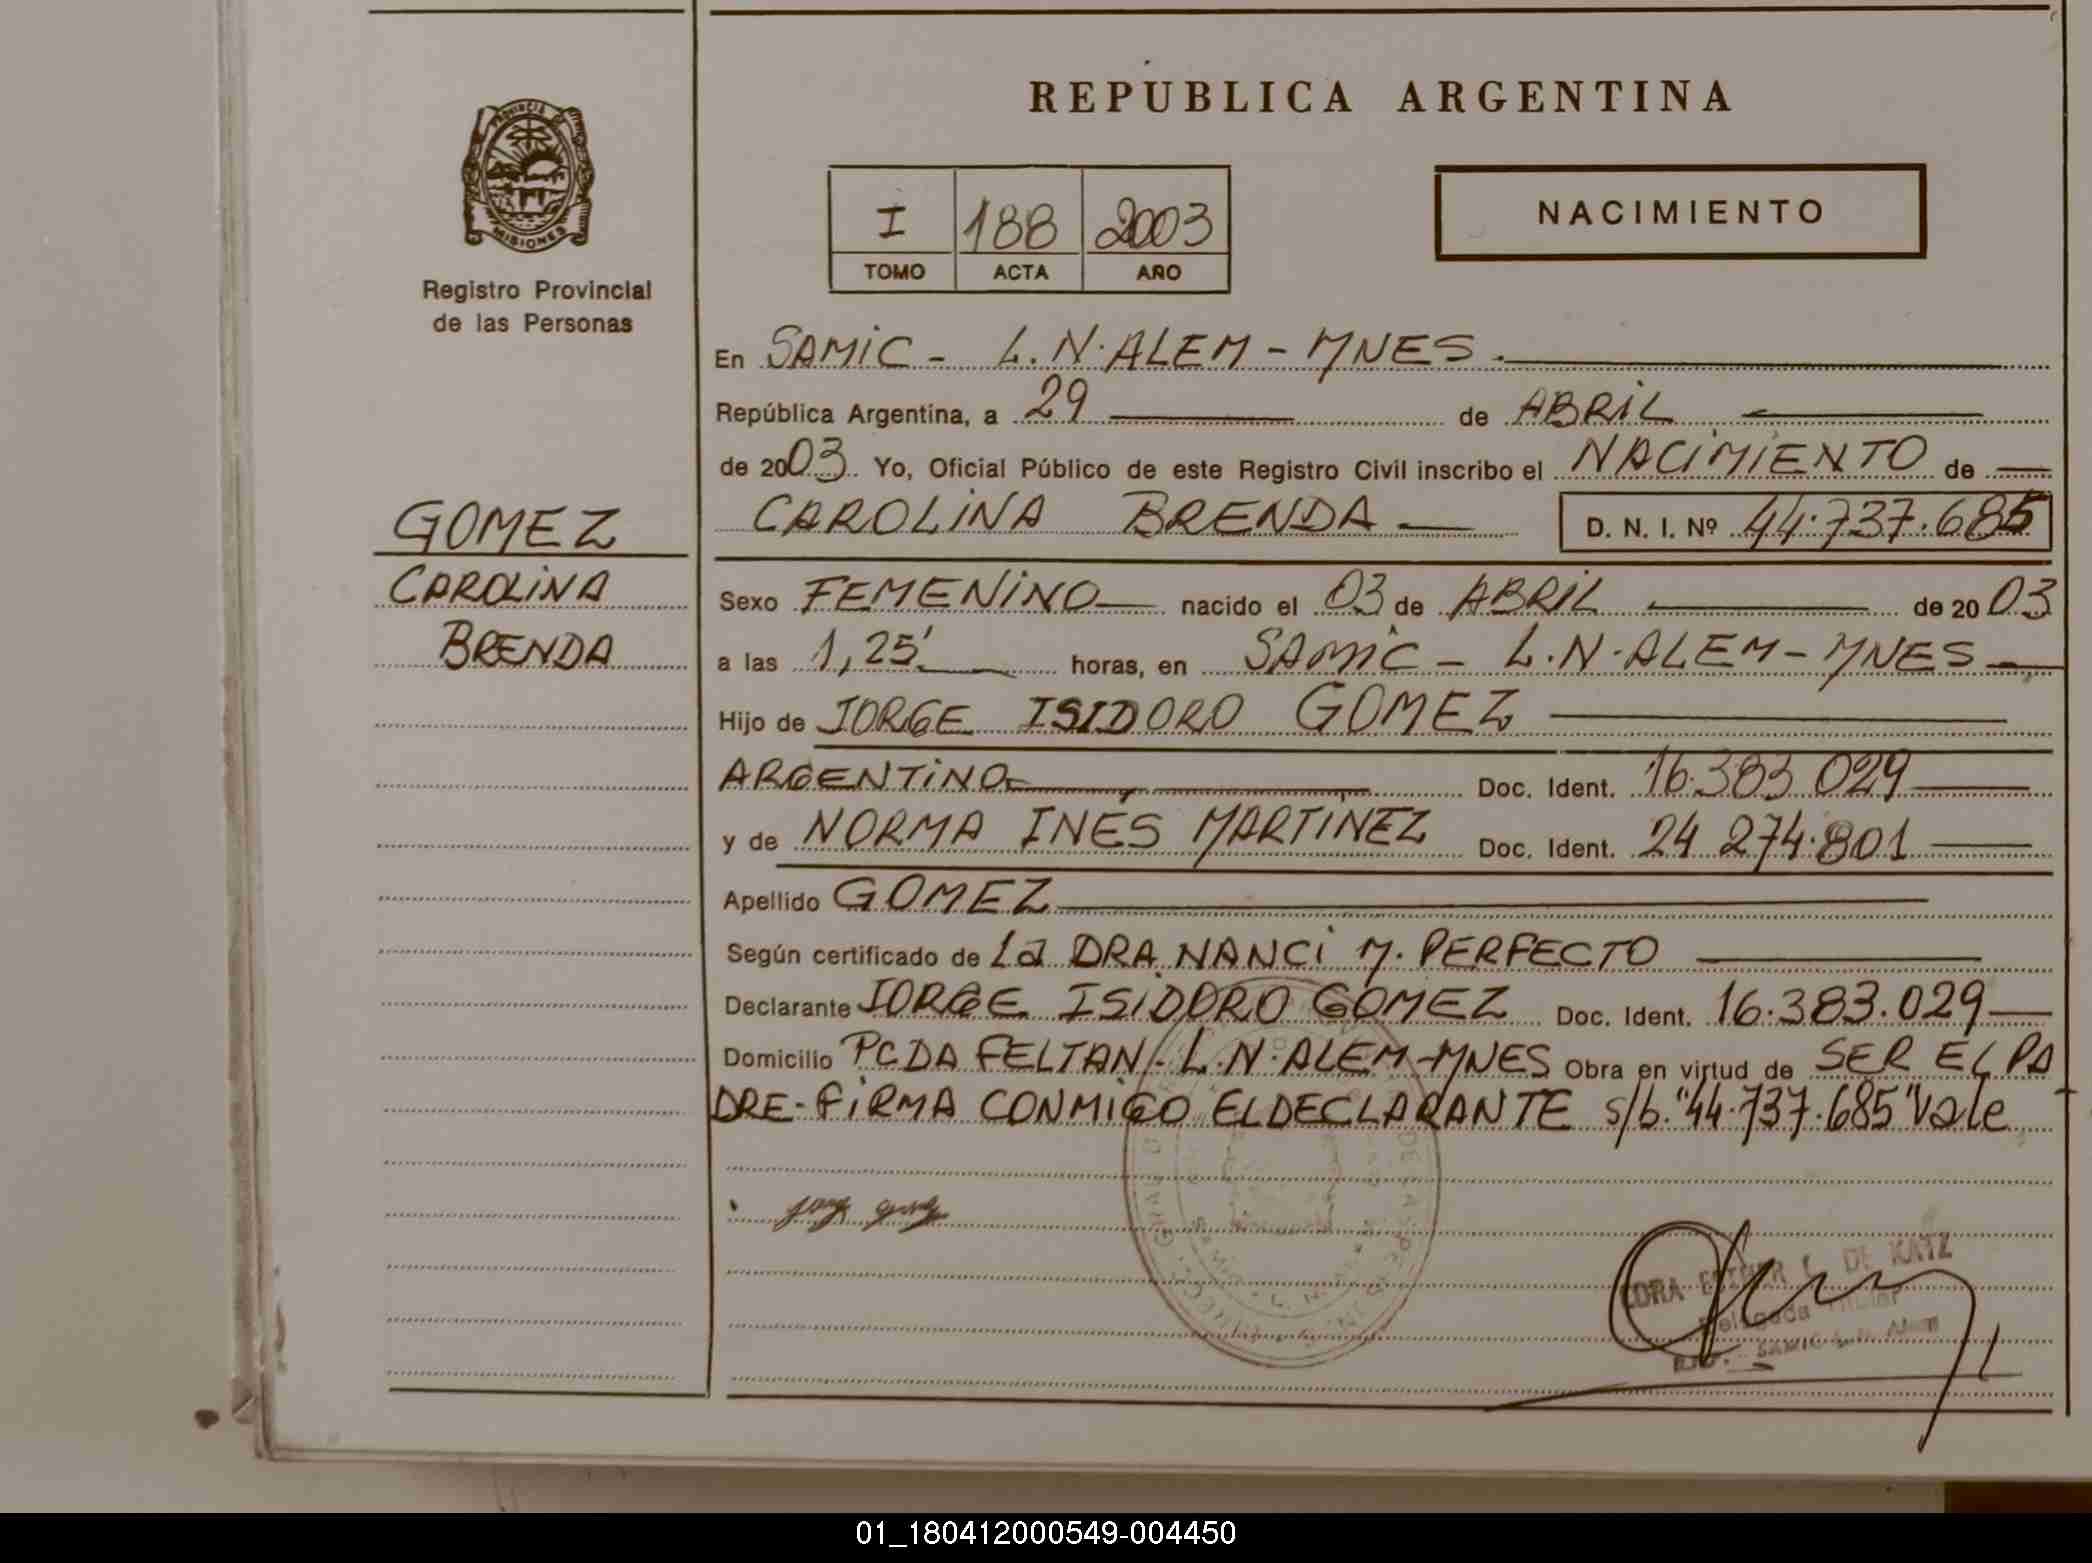 REPUBLICA ARGENTINA
PROVINCIA DE
MISIONES
Registro Provincial
de las Personas
I 188 2003
TOMO ACTA AÑO
NACIMIENTO
En SAMIC - L.N. ALEM - MNES.
República Argentina, a 29 de ABRIL
de 2003 Yo, Oficial Público de este Registro Civil inscribo el NACIMIENTO de
CAROLINA BRENDA D. N. I. Nº 44.737.685
GOMEZ
CAROLINA
BRENDA
Sexo FEMENINO nacido el 03 de ABRIL de 2003
a las 1,25' horas, en SAMIC - L.N. ALEM - MNES
Hijo de JORGE ISIDORO GOMEZ
ARGENTINO Doc. Ident. 16.383 029
y de NORMA INÉS MARTINEZ Doc. Ident. 24 274.801
Apellido GOMEZ
Según certificado de La DRA NANCI M. PERFECTO
Declarante JORGE ISIDORO GOMEZ Doc. Ident. 16.383.029
Domicilio PCDA FELTAN - L.N. ALEM - MNES Obra en virtud de SER EL PA
DRE - FIRMA CONMIGO EL DECLARANTE s/b. "44.737.685" Vale
DE KATZ
Delegada Titular
SAMIC L. N. Alem
01_180412000549-004450